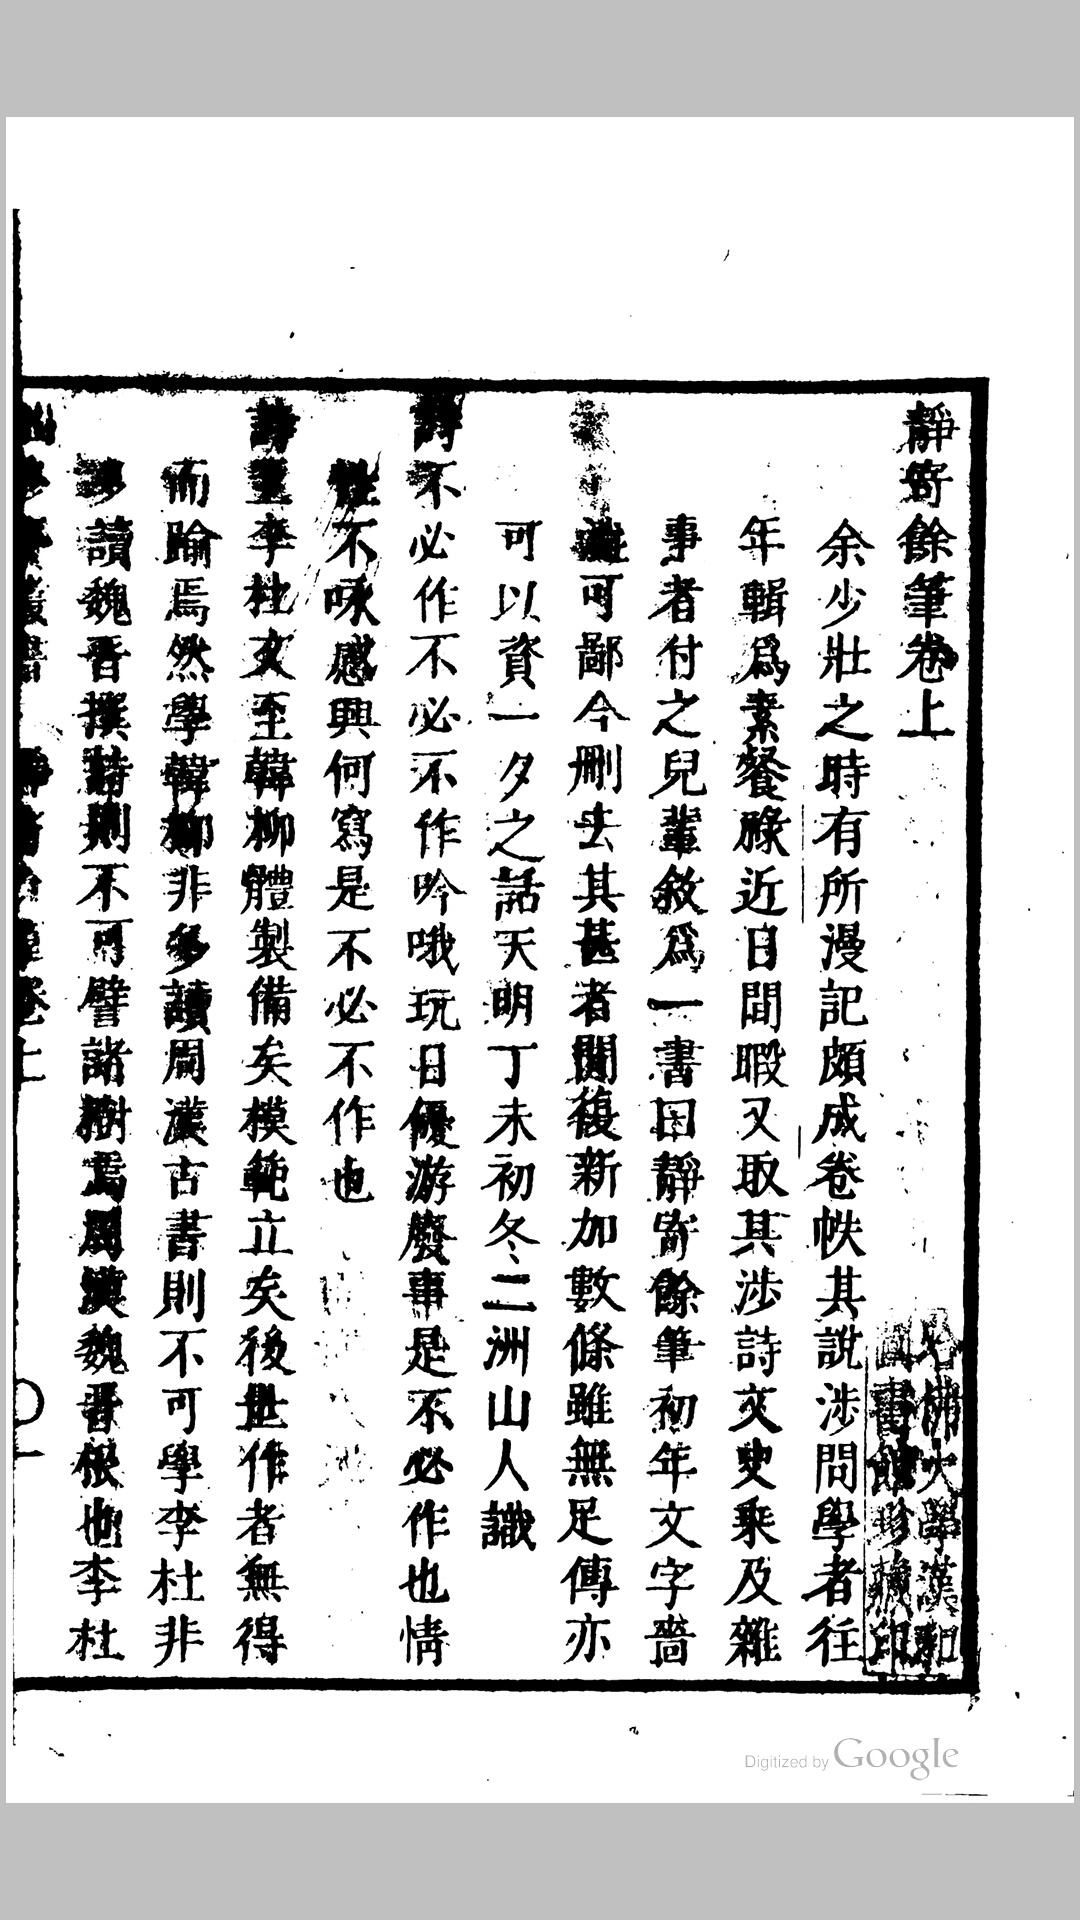 靜寄餘筆卷上
余少壯之時有所漫記頗成卷帙其說涉問學者往
年輯爲素餐祿近日聞暇又取其涉詩文史乘及雜
事者付之兒輩敘爲一書曰靜寄餘筆初年文字啬
可鄙今刪去其甚者間復新加數條雖無足傳亦
可以資一夕之話天明丁未初冬二洲山人識
詩不必作不必不作吟哦玩日優游廢事是不必作也情
性不咏感興何寫是不必不作也
詩至李杜文至韓柳體製備矣模範立矣後世作者無得
而踰焉然學韓柳非多讀周漢古書則不可學李杜非
多讀魏晉撰詩則不可譬諸樹焉周漢魏晉根也李杜
哈佛大學漢和
圖書館珍藏印
Digitized by Google